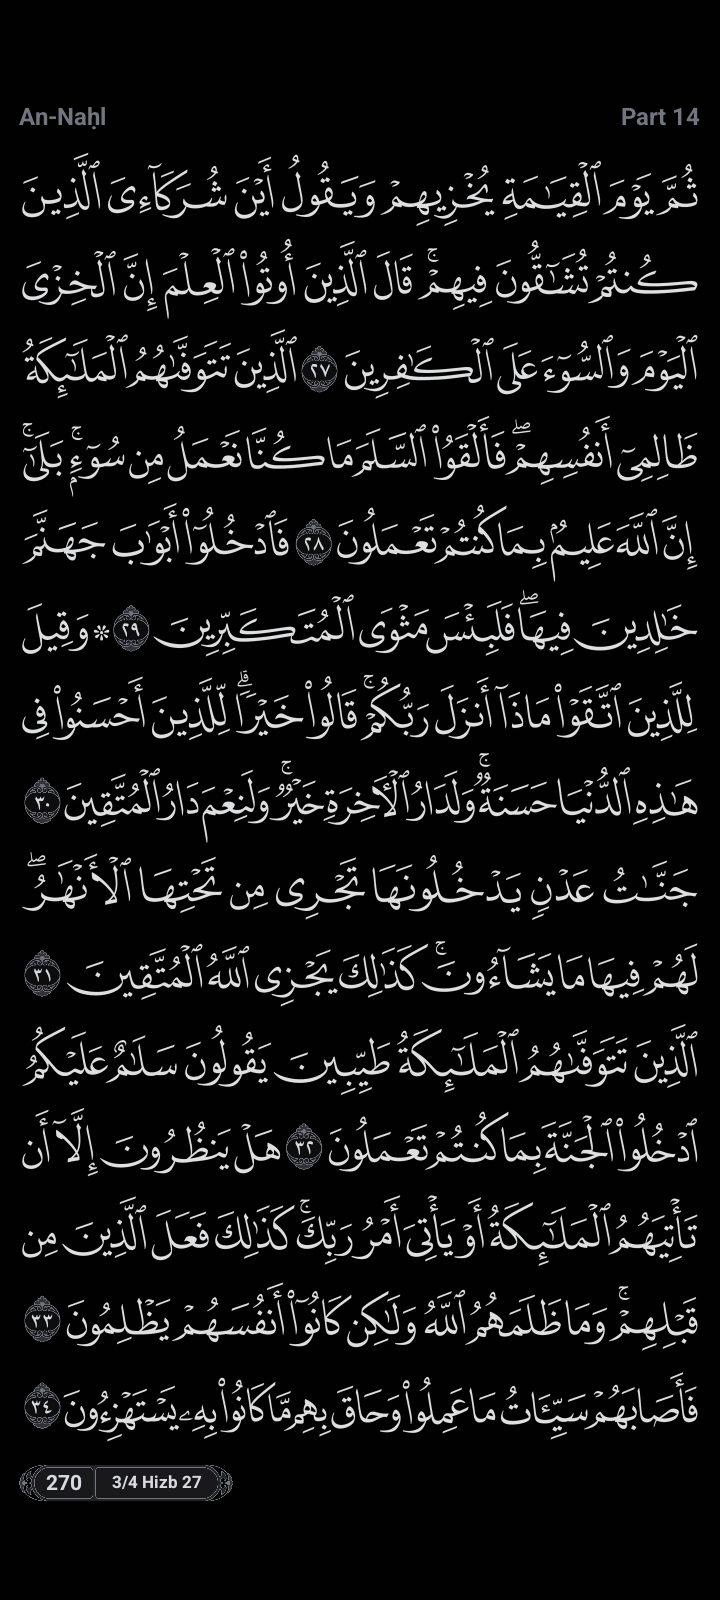 An-Naḥl
Part 14
ثُمَّ يَوْمَ ٱلْقِيَـٰمَةِ يُخْزِيهِمْ وَيَقُولُ أَيْنَ شُرَكَآءِىَ ٱلَّذِينَ
كُنتُمْ تُشَـٰٓقُّونَ فِيهِمْ ۚ قَالَ ٱلَّذِينَ أُوتُوا۟ ٱلْعِلْمَ إِنَّ ٱلْخِزْىَ
ٱلْيَوْمَ وَٱلسُّوٓءَ عَلَى ٱلْكَـٰفِرِينَ ٢٧ ٱلَّذِينَ تَتَوَفَّىٰهُمُ ٱلْمَلَـٰٓئِكَةُ
ظَالِمِىٓ أَنفُسِهِمْ ۖ فَأَلْقَوُا۟ ٱلسَّلَمَ مَا كُنَّا نَعْمَلُ مِن سُوٓءٍۭ ۚ بَلَىٰٓ ۚ
إِنَّ ٱللَّهَ عَلِيمٌۢ بِمَا كُنتُمْ تَعْمَلُونَ ٢٨ فَٱدْخُلُوٓا۟ أَبْوَٰبَ جَهَنَّمَ
خَـٰلِدِينَ فِيهَا ۖ فَلَبِئْسَ مَثْوَى ٱلْمُتَكَبِّرِينَ ٢٩ ۞ وَقِيلَ
لِلَّذِينَ ٱتَّقَوْا۟ مَاذَآ أَنزَلَ رَبُّكُمْ ۚ قَالُوا۟ خَيْرًا ۗ لِّلَّذِينَ أَحْسَنُوا۟ فِى
هَـٰذِهِ ٱلدُّنْيَا حَسَنَةٌ ۚ وَلَدَارُ ٱلْـَٔاخِرَةِ خَيْرٌ ۚ وَلَنِعْمَ دَارُ ٱلْمُتَّقِينَ ٣٠
جَنَّـٰتُ عَدْنٍ يَدْخُلُونَهَا تَجْرِى مِن تَحْتِهَا ٱلْأَنْهَـٰرُ ۖ
لَهُمْ فِيهَا مَا يَشَآءُونَ ۚ كَذَٰلِكَ يَجْزِى ٱللَّهُ ٱلْمُتَّقِينَ ٣١
ٱلَّذِينَ تَتَوَفَّىٰهُمُ ٱلْمَلَـٰٓئِكَةُ طَيِّبِينَ يَقُولُونَ سَلَـٰمٌ عَلَيْكُمُ
ٱدْخُلُوا۟ ٱلْجَنَّةَ بِمَا كُنتُمْ تَعْمَلُونَ ٣٢ هَلْ يَنظُرُونَ إِلَّآ أَن
تَأْتِيَهُمُ ٱلْمَلَـٰٓئِكَةُ أَوْ يَأْتِىَ أَمْرُ رَبِّكَ ۚ كَذَٰلِكَ فَعَلَ ٱلَّذِينَ مِن
قَبْلِهِمْ ۚ وَمَا ظَلَمَهُمُ ٱللَّهُ وَلَـٰكِن كَانُوٓا۟ أَنفُسَهُمْ يَظْلِمُونَ ٣٣
فَأَصَابَهُمْ سَيِّـَٔاتُ مَا عَمِلُوا۟ وَحَاقَ بِهِم مَّا كَانُوا۟ بِهِۦ يَسْتَهْزِءُونَ ٣٤
270 3/4 Hizb 27